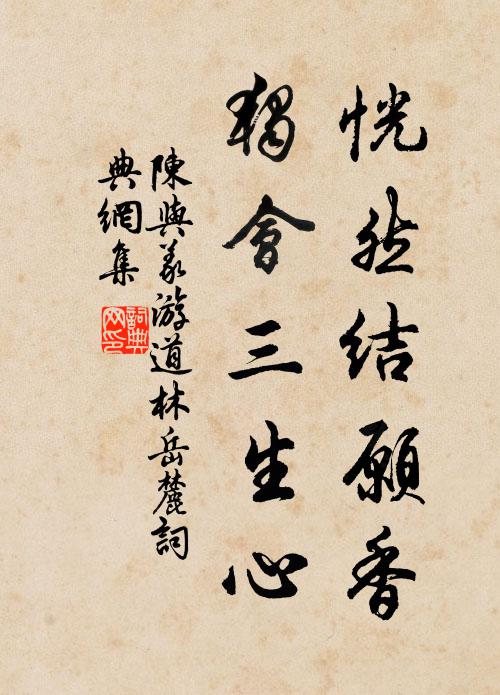 恍然结願香
獨會三生心
陳與义游道林岳麓詞
典網集
詞典网印